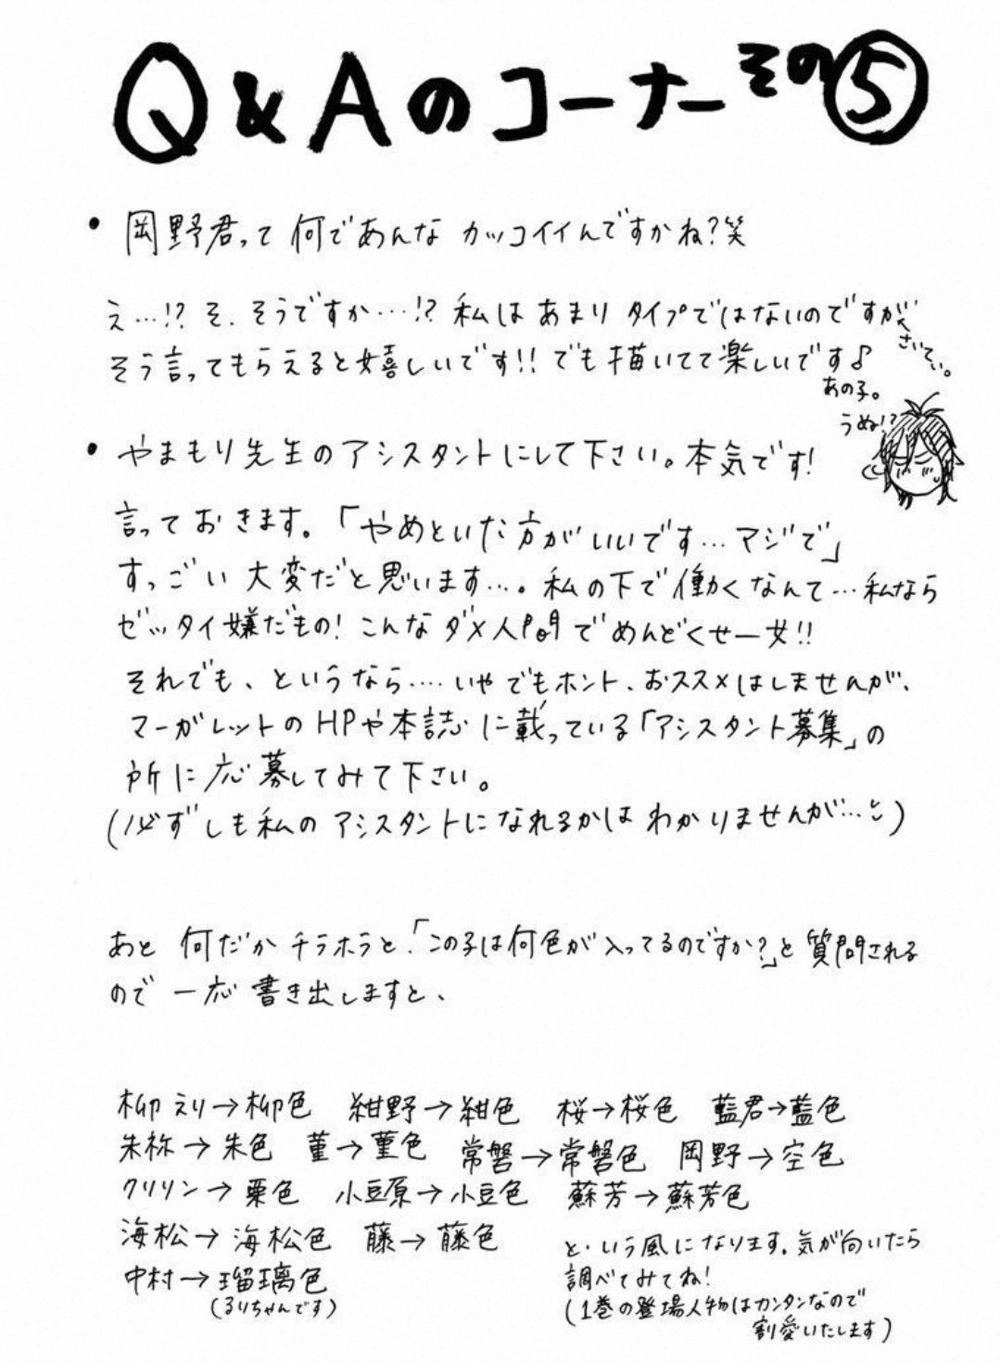 Q&Aのコーナーその⑤
・岡野君って何であんなカッコイイんですかね?笑
え…!?そ、そうですか…!?私はあまりタイプではないのですが
そう言ってもらえると嬉しいです!!でも描いてて楽しいです♪
さいてい。
あの子。
うぬ!?
・やまもり先生のアシスタントにして下さい。本気です!
言っておきます。「やめといた方がいいです…マジで」
すっごい大変だと思います…。私の下で働くなんて…私なら
ゼッタイ嫌だもの!こんなダメ人間でめんどくせー女!!
それでも、というなら‥‥いやでもホント、おススメはしませんが、
マーガレットのHPや本誌に載っている「アシスタント募集」の
所に応募してみて下さい。
(必ずしも私のアシスタントになれるかはわかりませんが…)
あと何だかチラホラと「この子は何色が入ってるのですか?」と質問される
ので一応書き出しますと、
柳えり→柳色 紺野→紺色 桜→桜色 藍君→藍色
朱祢→朱色 菫→菫色 常磐→常磐色 岡野→空色
クリリン→栗色 小豆原→小豆色 蘇芳→蘇芳色
海松→海松色 藤→藤色
中村→瑠璃色
(るりちゃんです)
と、いう風になります。気が向いたら
調べてみてね!
(1巻の登場人物はカンタンなので
割愛いたします)